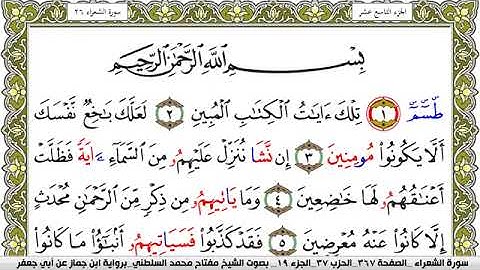 الجزء التاسع عشر
سورة الشعراء ٢٦
بِسْمِ اللَّهِ الرَّحْمَٰنِ الرَّحِيمِ
طسٓمٓ ١ تِلْكَ ءَايَاتُ الْكِتَابِ الْمُبِينِ ٢ لَعَلَّكَ بَاخِعٌ نَفْسَكَ
أَلَّا يَكُونُوا مُومِنِينَ ٣ إِن نَّشَا نُنَزِّلْ عَلَيْهِمُو مِنَ السَّمَاءِ ءَايَةً فَظَلَّتْ
أَعْنَاقُهُمُو لَهَا خَاضِعِينَ ٤ وَمَا يَاتِيهِمُو مِن ذِكْرٍ مِّنَ الرَّحْمَٰنِ مُحْدَثٍ
إِلَّا كَانُوا عَنْهُ مُعْرِضِينَ ٥ فَقَدْ كَذَّبُوا فَسَيَاتِيهِمُو أَنبَاؤُا مَا كَانُوا
سورة الشعراء _ الصفحة ٣٦٧_ الحزب ٣٧_ الجزء ١٩ _ بصوت الشيخ مفتاح محمد السلطني_ برواية ابن جماز عن أبي جعفر